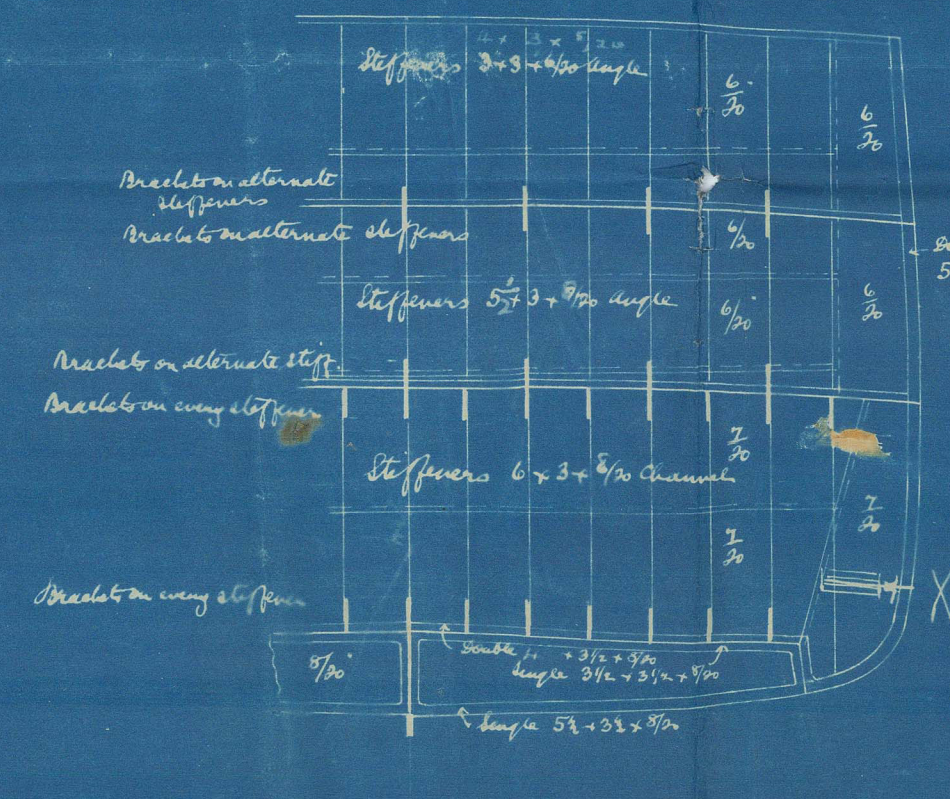 4 x 3 x 5/20
Stiffeners 3 x 3 x 6/20 Angle
6/20"
6/20
Brackets on alternate
stiffeners
Brackets on alternate stiffeners
6/20
Do
5
Stiffeners 5½ x 3 x /20 Angle
6/20"
6/20
Brackets on alternate stiff.
Brackets on every stiffener
7/20
Stiffeners 6 x 3 x 8/20 Channel
7/20
7/20
Brackets on every stiffener
X
8/20"
Double x 3 1/2 x 8/20
Single 3 1/2 x 3 1/2 x 8/20
Single 5½ x 3½ x 8/20